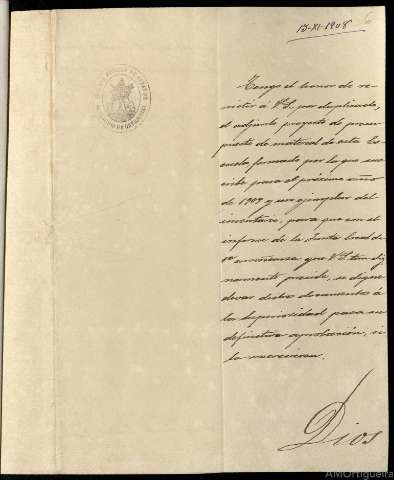 13-XI-1908
6
Tengo el honor de re-
mitir á V. S. por duplicado,
el adjunto proyecto de presu-
puesto de material de esta Es-
cuela, formado por la que sus-
cribe para el próximo año
de 1909 y un ejemplar del
inventario, para que con el
informe de la Junta local de
1ª enseñanza que V. S. tan dig-
namente preside, se digne
elevar dichos documentos á
la Superioridad para su
definitiva aprobación, si
la merecieren.
Dios
AMOrtigueira